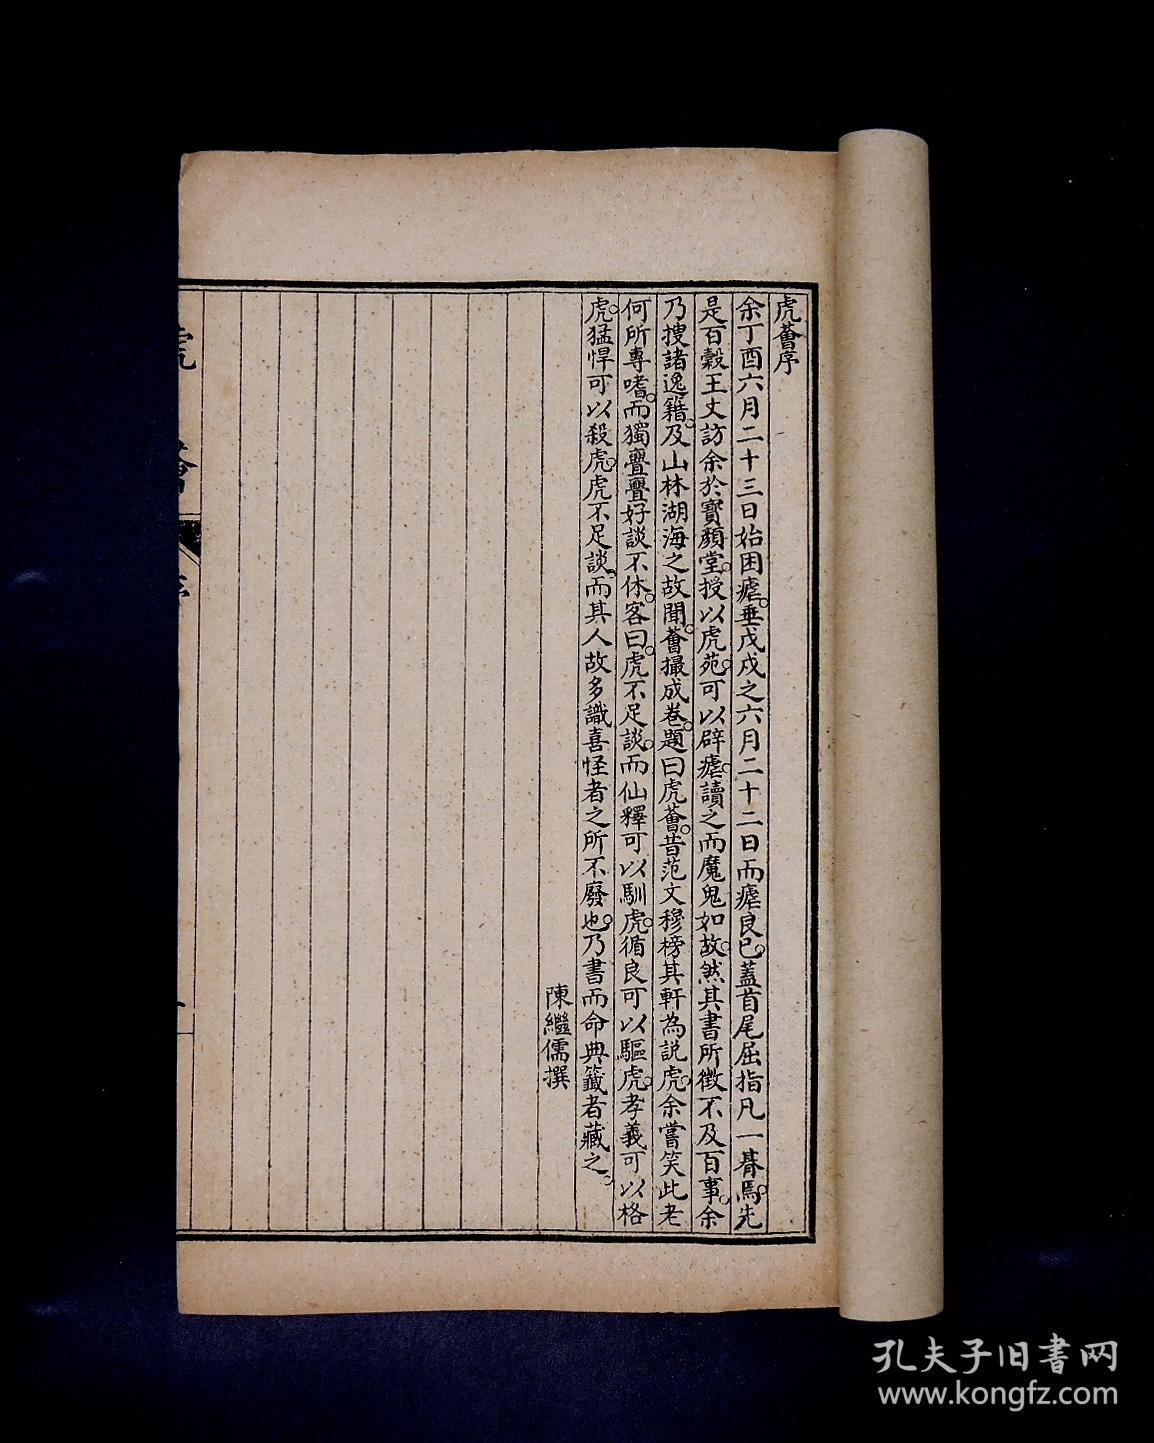 虎薈序
余丁酉六月二十三日始困瘧垂戊戌之六月二十二日而瘧良已蓋首尾屈指凡一朞焉先
是百穀王丈訪余於寶顏堂授以虎苑可以辟瘧讀之而魔鬼如故然其書所徵不及百事余
乃搜諸逸籍及山林湖海之故聞薈撮成卷題曰虎薈昔范文穆榜其軒為説虎余嘗笑此老
何所專嗜而獨亹亹好談不休客曰虎不足談而仙釋可以馴虎循良可以驅虎孝義可以格
虎猛悍可以殺虎虎不足談而其人故多識喜怪者之所不廢也乃書而命典籤者藏之
陳繼儒撰
虎薈
序
一
孔夫子旧書网
www.kongfz.com